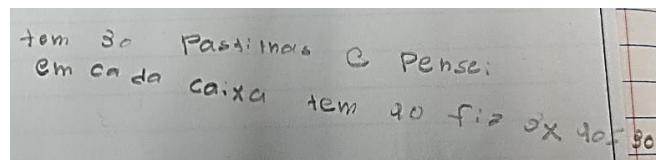 tem 30 Pastilhas e Pensei
em cada caixa tem 10 fiz 3x 10=30